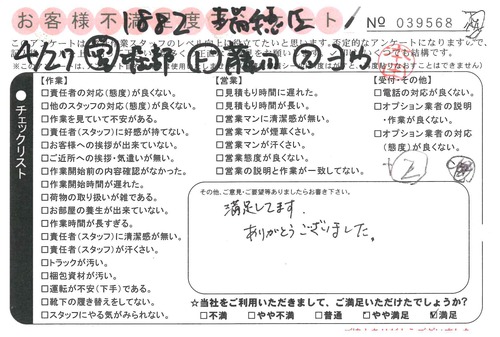 お客様不満足度 1882 瑞穂区 ト
No 039568
4/27 営 服部 藤岡
チェックリスト
【作業】
□責任者の対応(態度)が良くない。
□他のスタッフの対応(態度)が良くない。
□作業を見ていて不安がある。
□責任者(スタッフ)に好感が持てない。
□お客様への挨拶が出来ていない。
□ご近所への挨拶・気遣いが無い。
□作業開始前の内容確認がなかった。
□作業開始時間が遅れた。
□荷物の取り扱いが雑である。
□お部屋の養生が出来ていない。
□作業時間が長すぎる。
□責任者(スタッフ)に清潔感が無い。
□責任者(スタッフ)が汗くさい。
□トラックが汚い。
□梱包資材が汚い。
□運転が不安(下手)である。
□靴下の履き替えをしてない。
□スタッフにやる気がみられない。
【営業】
□見積もり時間に遅れた。
□見積もり時間が長い。
□営業マンに清潔感が無い。
□営業マンが煙草くさい。
□営業マンが汗くさい。
□営業態度が良くない。
□営業の説明と作業が一致してない。
【受付・その他】
□電話の対応が良くない。
□オプション業者の説明
・作業が良くない。
□オプション業者の対応
(態度)が良くない。
2
その他、ご意見・ご要望等ありましたらお書き下さい。
満足してます。
ありがとうございました。
☆当社をご利用いただきまして、ご満足いただけたでしょうか?
□不満 □やや不満 □普通 □やや満足 ☑満足